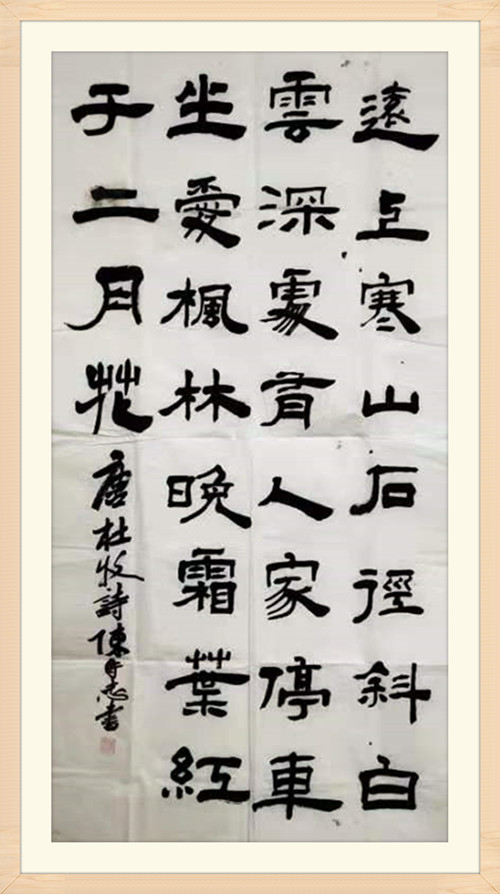 遠上寒山石徑斜白
雲深處有人家停車
坐愛楓林晚霜葉紅
于二月花
唐杜牧詩陳志書